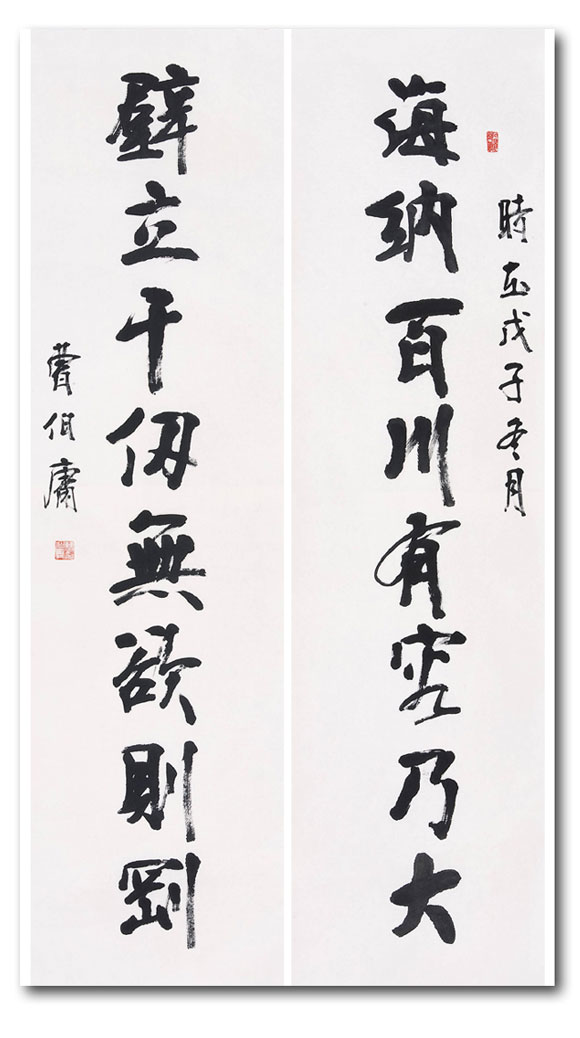 時在戊子冬月
海納百川有容乃大
壁立千仞無欲則剛
曹伯庸